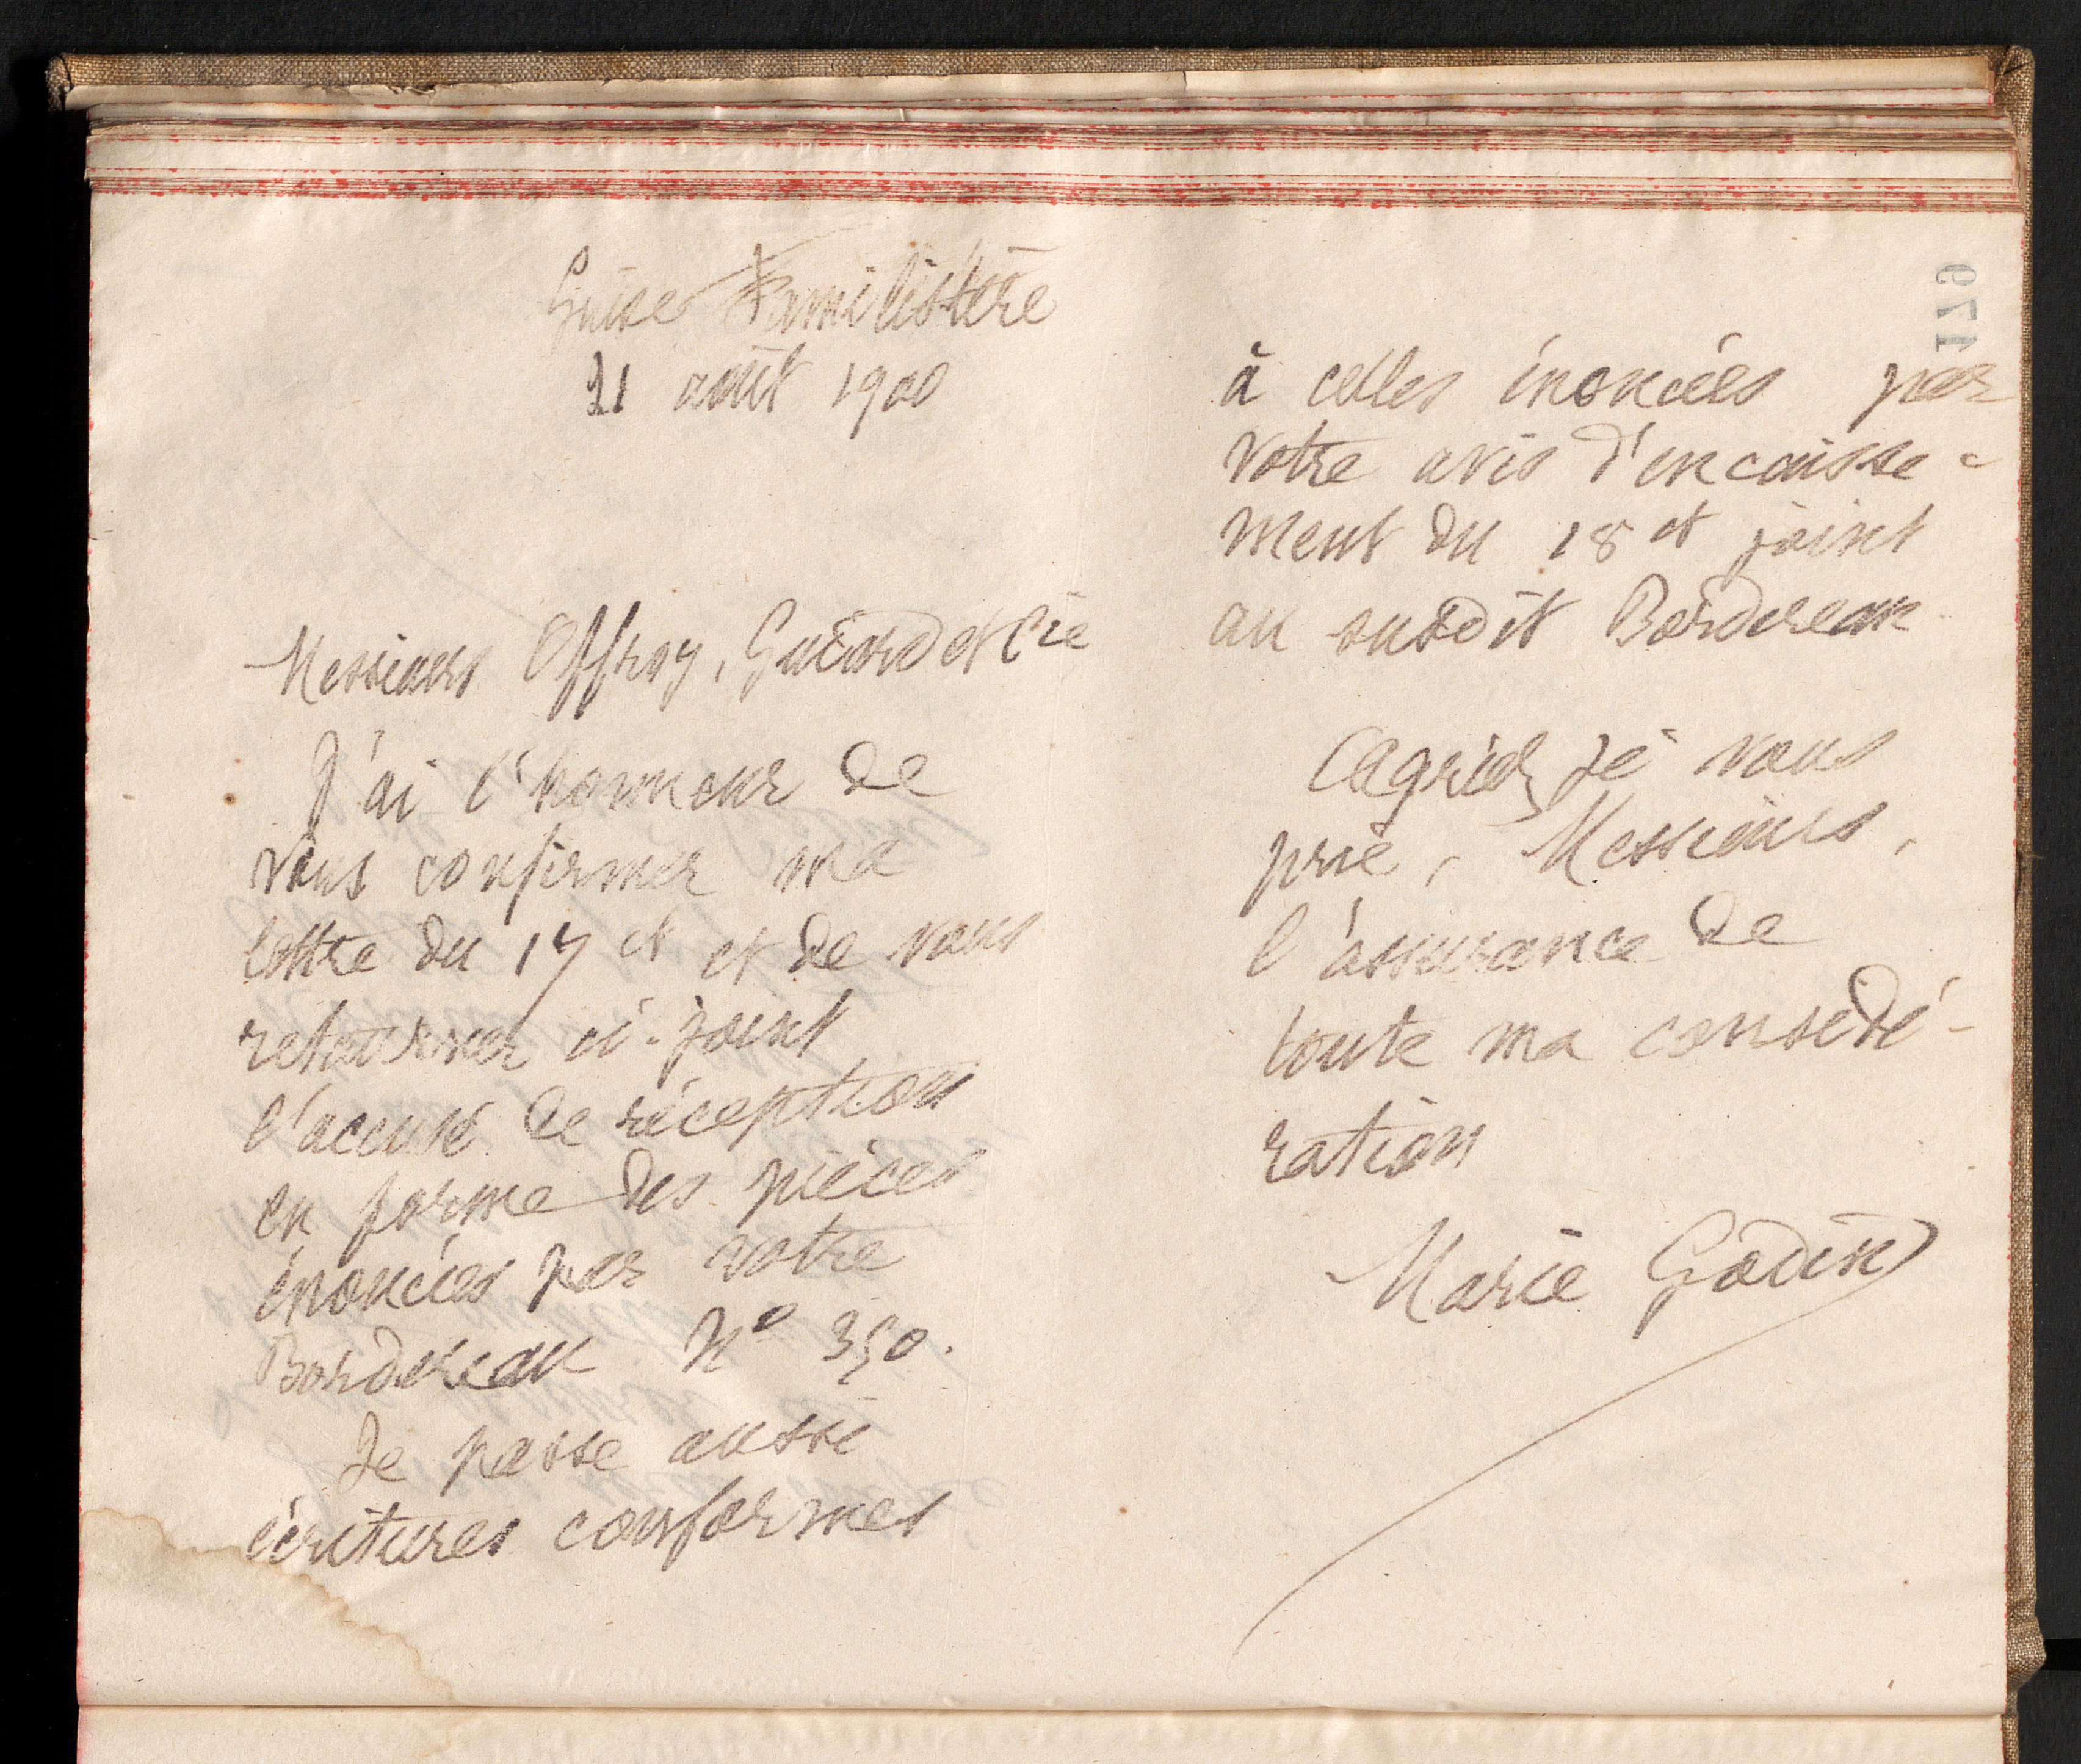 Guise Familistère
21 août 1900
Messieurs Offroy, Guiard et Cie
J'ai l'honneur de
vous confirmer ma
lettre du 17 ct et de vous
retourner ci-joint
l'accusé de réception
en forme des pièces
énoncées par votre
Bordereau No 350.
Je passe aussi
écritures conformes
179
à celles énoncées par
votre avis d'encaisse-
ment du 18 ct joint
au susdit Bordereau
Agréez je vous
prie, Messieurs,
l'assurance de
toute ma considé-
ration
Marie Godin